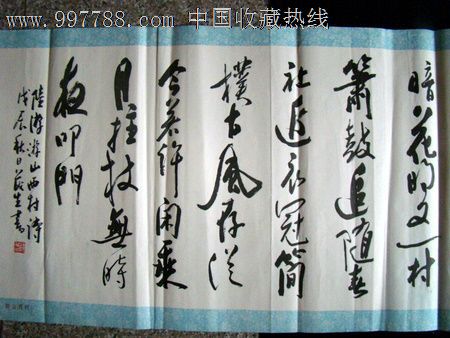 www.997788.com 中国收藏热线
暗花明又一村
箫鼓追随春
社近衣冠简
朴古风存从
今若许闲乘
月拄杖无时
夜叩门
陆游游山西村诗
戊辰秋日